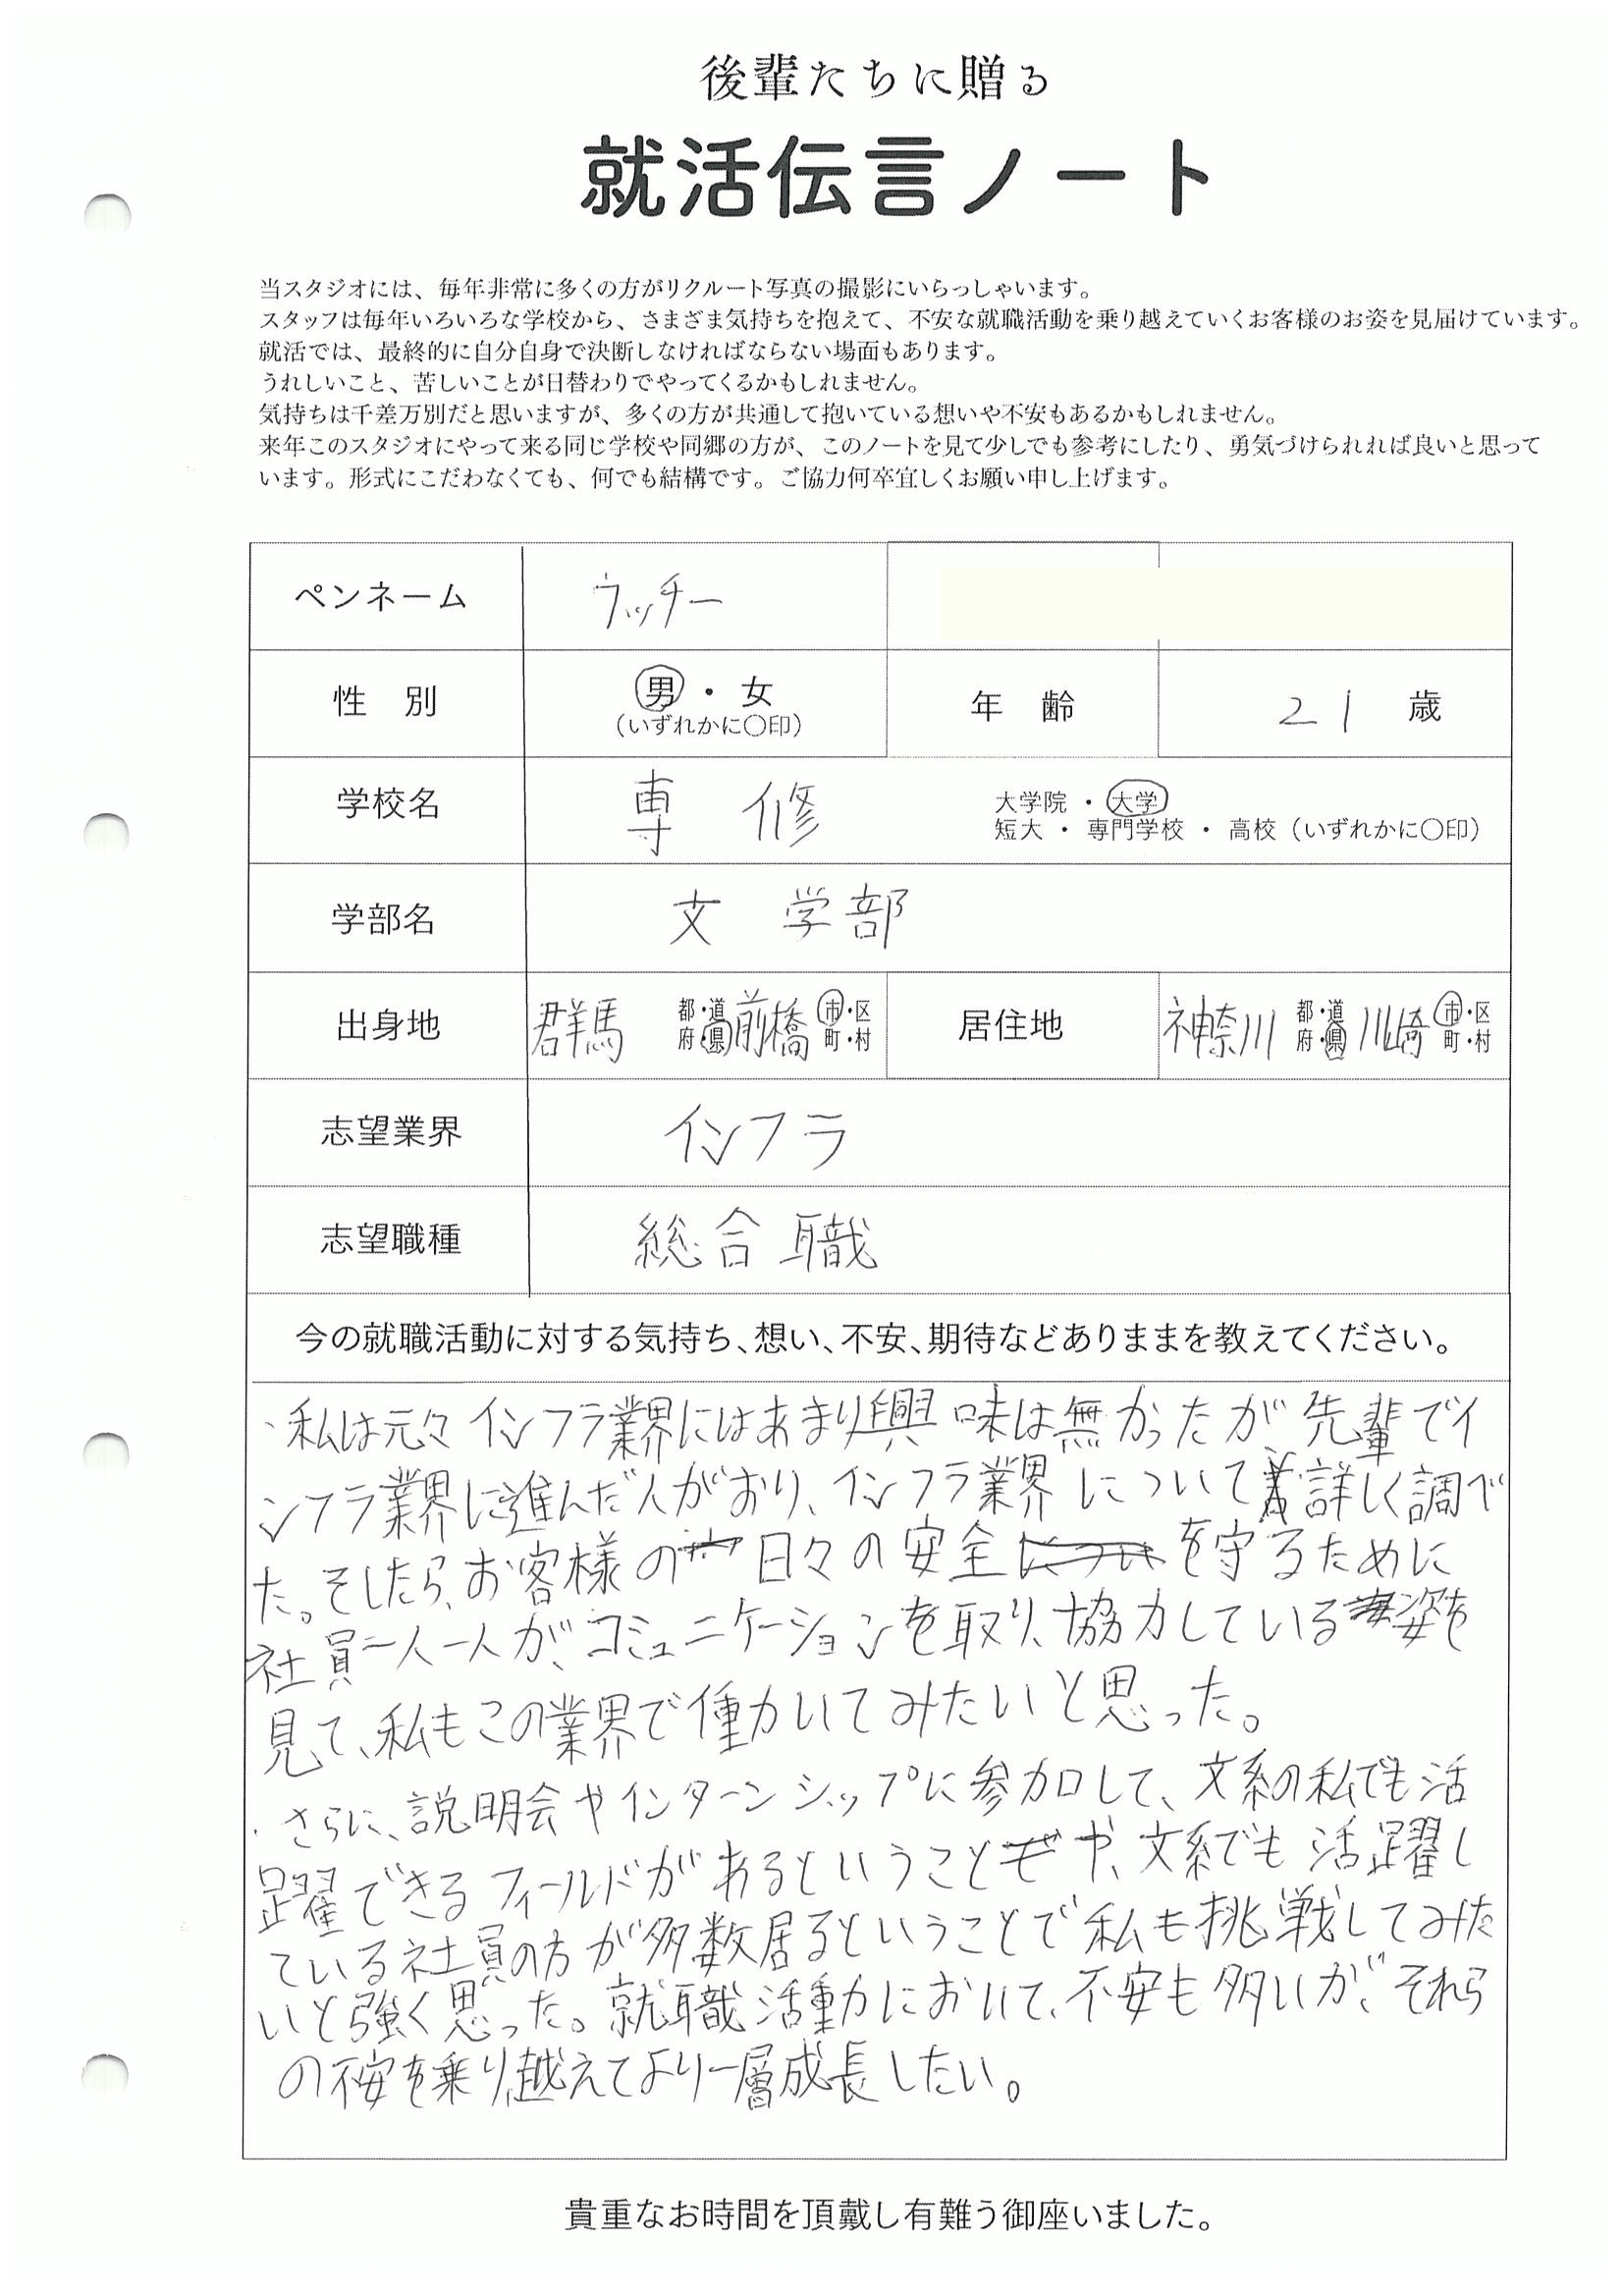 後輩たちに贈る
就活伝言ノート
当スタジオには、毎年非常に多くの方がリクルート写真の撮影にいらっしゃいます。
スタッフは毎年いろいろな学校から、さまざま気持ちを抱えて、不安な就職活動を乗り越えていくお客様のお姿を見届けています。
就活では、最終的に自分自身で決断しなければならない場面もあります。
うれしいこと、苦しいことが日替わりでやってくるかもしれません。
気持ちは千差万別だと思いますが、多くの方が共通して抱いている想いや不安もあるかもしれません。
来年このスタジオにやって来る同じ学校や同郷の方が、このノートを見て少しでも参考にしたり、勇気づけられれば良いと思って
います。形式にこだわなくても、何でも結構です。ご協力何卒宜しくお願い申し上げます。
ペンネーム ウッチー
性 別 男・女 (いずれかに〇印) 年 齢 21 歳
学校名 専修 大学院・大学
短大・専門学校・高校(いずれかに〇印)
学部名 文学部
出身地 群馬 都・道府・県 前橋 市・区町・村 居住地 神奈川 都・道府・県 川崎 市・区町・村
志望業界 インフラ
志望職種 総合職
今の就職活動に対する気持ち、想い、不安、期待などありままを教えてください。
・私は元々インフラ業界にはあまり興味は無かったが、先輩でイ
ンフラ業界に進んだ人がおり、インフラ業界について詳しく調べ
た。そしたら、お客様の日々の安全を守るために
社員一人一人が、コミュニケーションを取り、協力している姿を
見て、私もこの業界で働いてみたいと思った。
・さらに、説明会やインターンシップに参加して、文系の私でも活
躍できるフィールドがあるということや、文系でも活躍し
ている社員の方が多数居るということで私も挑戦してみた
いと強く思った。就職活動において、不安も多いが、それら
の不安を乗り越えてより一層成長したい。
貴重なお時間を頂戴し有難う御座いました。